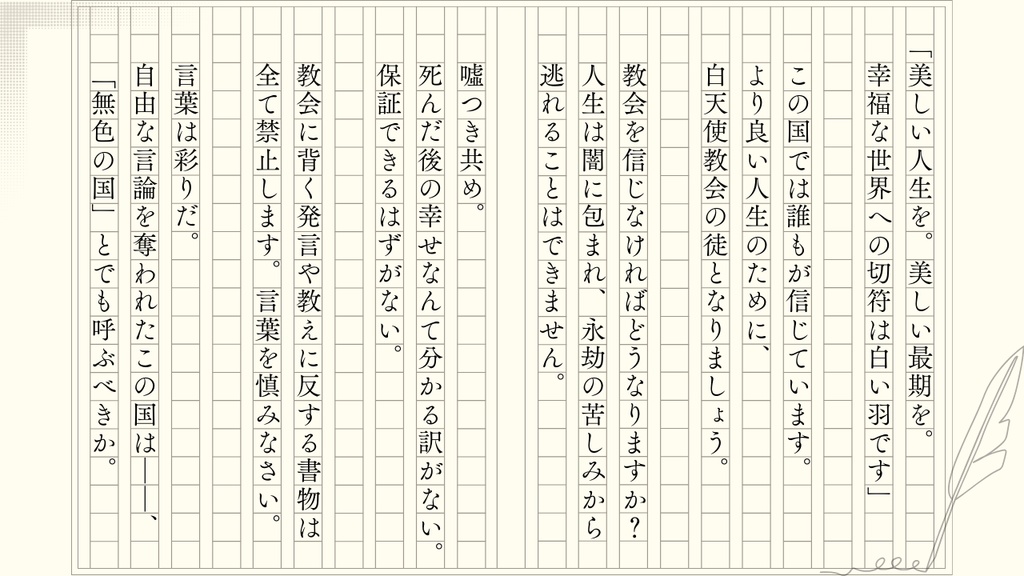 「美しい人生を。美しい最期を。
幸福な世界への切符は白い羽です」
この国では誰もが信じています。
より良い人生のために、
白天使教会の徒となりましょう。
教会を信じなければどうなりますか？
人生は闇に包まれ、永劫の苦しみから
逃れることはできません。
嘘つき共め。
死んだ後の幸せなんて分かる訳がない。
保証できるはずがない。
教会に背く発言や教えに反する書物は
全て禁止します。言葉を慎みなさい。
言葉は彩りだ。
自由な言論を奪われたこの国は――、
「無色の国」とでも呼ぶべきか。